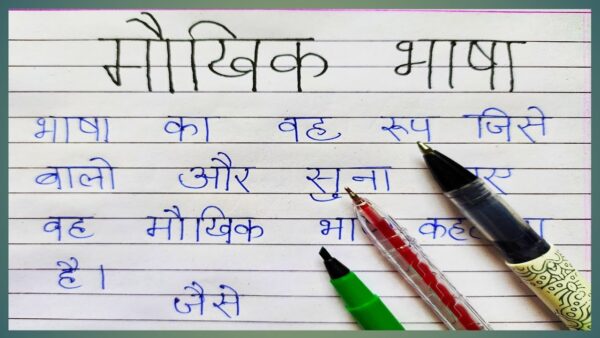 मौखिक भाषा
भाषा का वह रूप जिसे
बालो और सुना
वह मौखिक
है।
जैसे